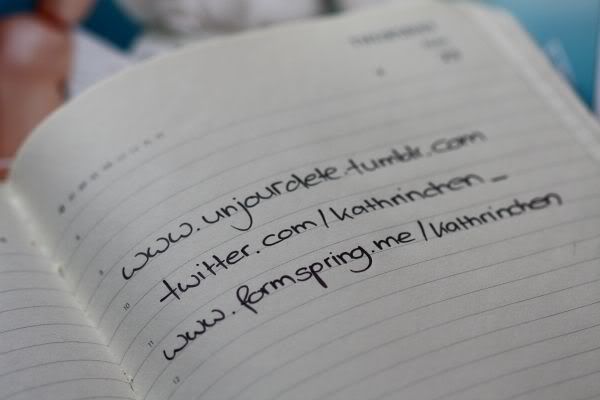 www.unjourdete.tumblr.com
twitter.com/kathrinchen_
www.formspring.me/kathrinchen
9
10
11
12